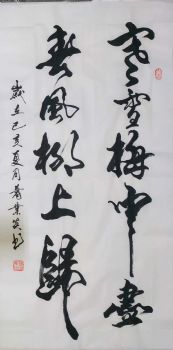 寒雪梅中盡
春風柳上歸
歲在己亥夏月